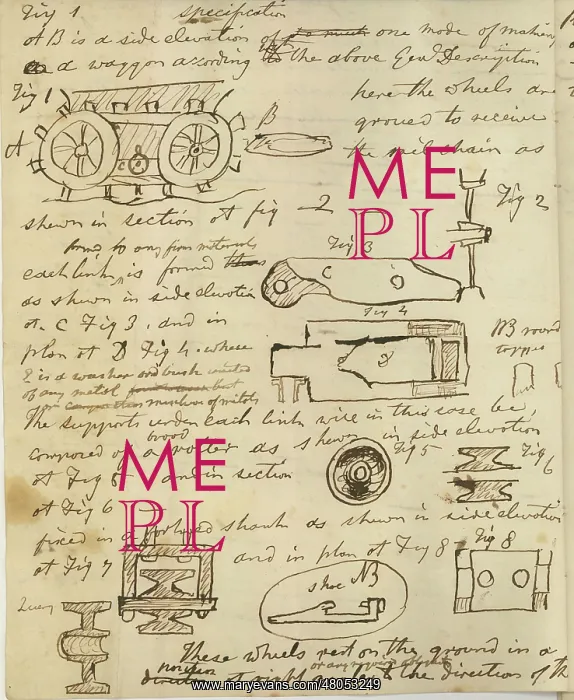 Fig 1 Specification
A B is a side elevation of one mode of making
a waggon according to the above Genl Description
Fig 1
here the wheels are
B
grooved to receive
A
the rail chain as
ME
PL
Fig 2
shewn in section at fig 2
Fig 3
each link is formed
C
as shewn in side elevation
Fig 4
at C Fig 3. and in
NB round
plan at D Fig 4. where
E is a washer and bush united
of any metal
mixture of metals
The supports under each link will in this case be
broad
composed of a roller as shewn in side elevation
Fig 5
Fig 6
ME
PL
at Fig 5 and in section
at Fig 6
fixed in a forked shank as shewn in side elevation
at Fig 7 and in plan at Fig 8
Fig 8
shoe NB
Query
These wheels rest on the ground in a
direction the direction of th
www.maryevans.com/48053249